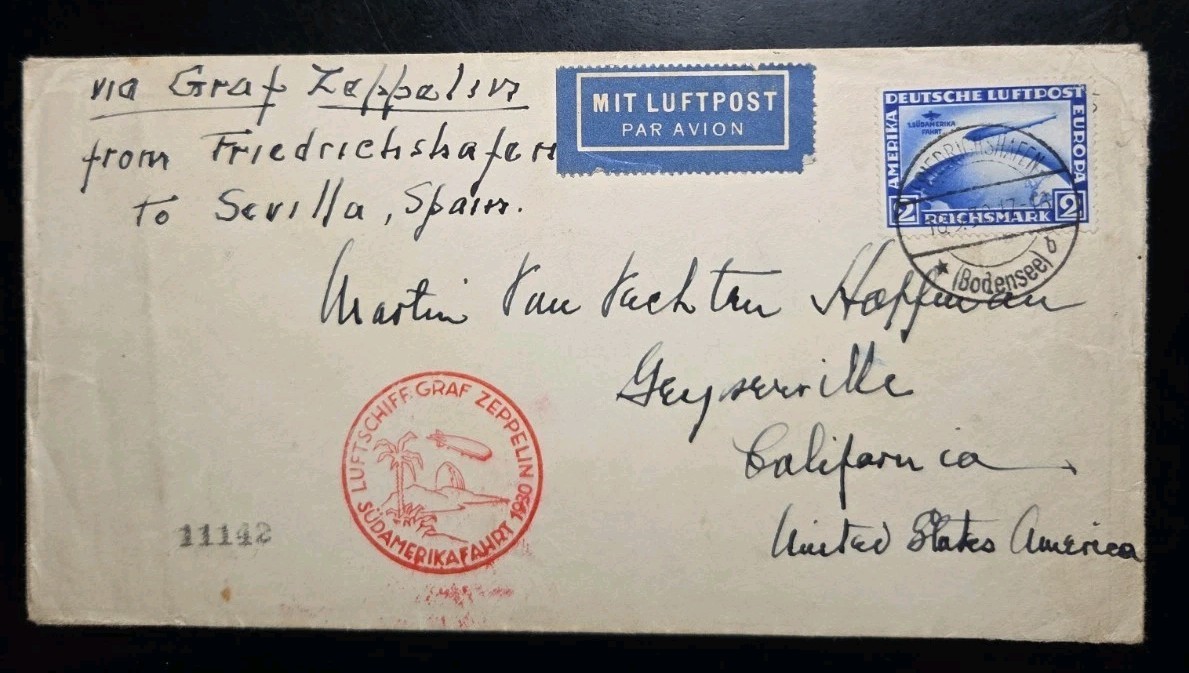 via Graf Zeppelin
from Friedrichshafen
to Sevilla, Spain.
MIT LUFTPOST
PAR AVION
DEUTSCHE LUFTPOST
AMERIKA
EUROPA
1. SÜDAMERIKA
FAHRT
2 REICHSMARK 2
FRIEDRICHSHAFEN
(Bodensee) b
Martin Van Vechten Hoffman
Geyserville
California
United States America
LUFTSCHIFF GRAF ZEPPELIN
SÜDAMERIKAFAHRT 1930
11142